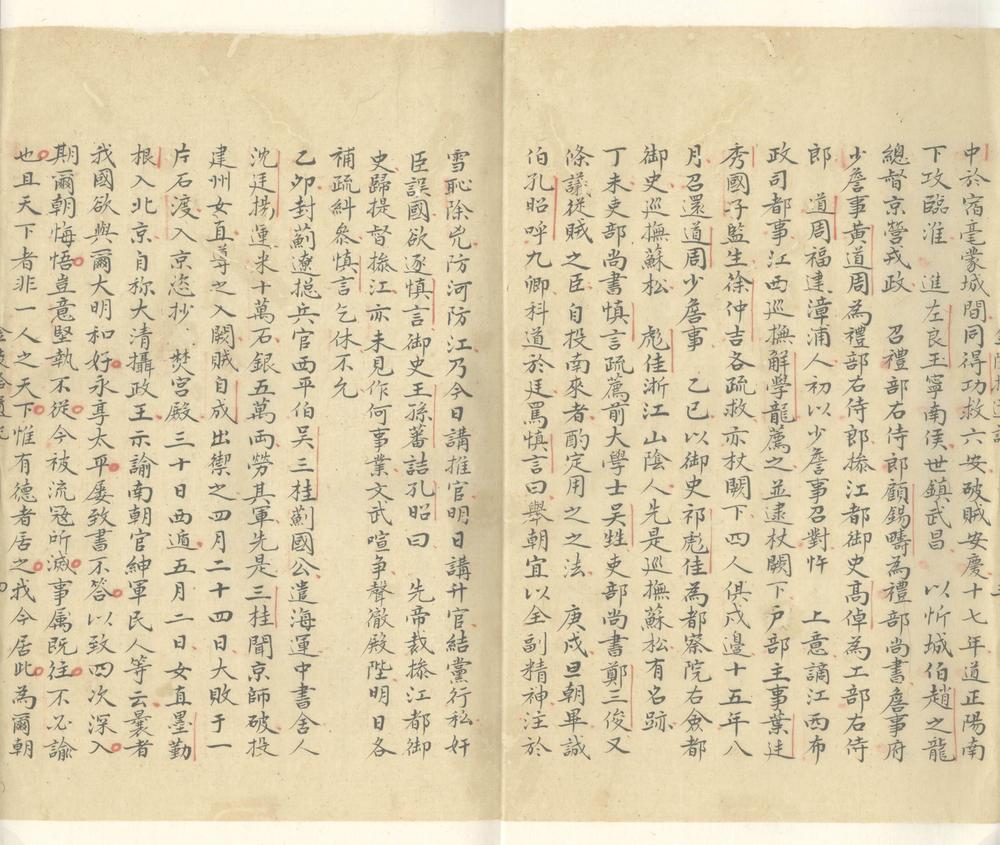 中於宿亳蒙城間同得功救六安破賊安慶十七年道正陽南
下攻臨淮　進左良玉寧南侯世鎮武昌　以忻城伯趙之龍
總督京營戎政　召禮部右侍郎顧錫疇為禮部尚書詹事府
少詹事黃道周為禮部右侍郎掾江都御史高倬為工部右侍
郎　道周福建漳浦人初以少詹事召對忤　上意謫江西布
政司都事江西巡撫解學龍薦之並逮杖闕下戶部主事葉廷
秀國子監生徐仲吉各疏救亦杖闕下四人俱戍邊十五年八
月召還道周少詹事　乙巳以御史祁彪佳為都察院右僉都
御史巡撫蘇松　彪佳浙江山陰人先是巡撫蘇松有名跡
丁未吏部尚書慎言疏薦前大學士吳甡吏部尚書鄭三俊又
條議從賊之臣自投南來者酌定用之之法　庚戌旦朝畢誠
伯孔昭呼九卿科道於廷罵慎言曰舉朝宜以全副精神注於
雪恥除兇防河防江乃今日講推官明日講升官結黨行私奸
臣誤國欲逐慎言御史王孫蕃詰孔昭曰　先帝裁掾江都御
史歸提督掾江亦未見作何事業文武喧爭聲徹殿陛明日各
補疏糾參慎言乞休不允
乙卯封薊遼摠兵官西平伯吳三桂薊國公遣海運中書舍人
沈廷揚運米十萬石銀五萬兩勞其軍先是三桂聞京師破投
建州女直導之入闕賊自成出禦之四月二十四日大敗于一
片石渡入京恣抄　焚宮殿三十日西遁五月二日女直墨勤
根入北京自称大清攝政王示諭南朝官紳軍民人等云曩者
我國欲與爾大明和好永享太平屡致書不答以致四次深入
期爾朝悔悟豈意堅執不從今被流寇所滅事属既往不必諭
也且天下者非一人之天下惟有德者居之我今居此為爾朝